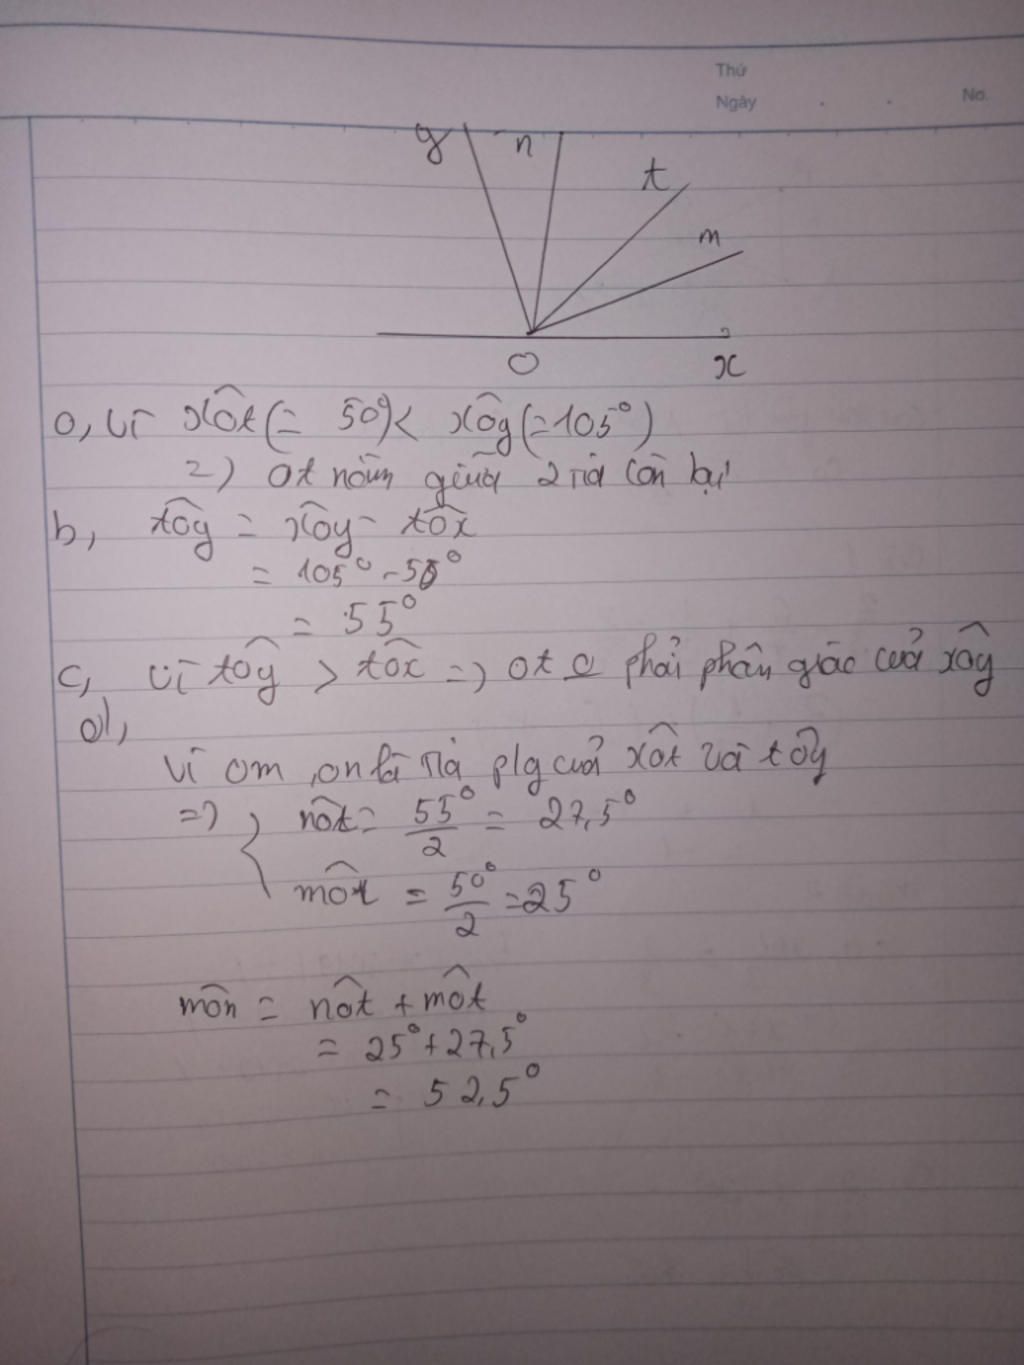 Thứ
Ngày . . No.
y n t m
O x
a, Vì xôt (= 50°) < xôy (= 105°)
=) Ot nằm giữa 2 tia còn lại
b, tôy = xôy - tôx
= 105° - 50°
= 55°
c, Vì tôy > tôx =) ot o phải phân giác của xôy
d,
Vì om, on là tia plg của xôt và tôy
=) { nôt = 55°/2 = 27,5°
môt = 50°/2 = 25°
môn = nôt + môt
= 25° + 27,5°
= 52,5°